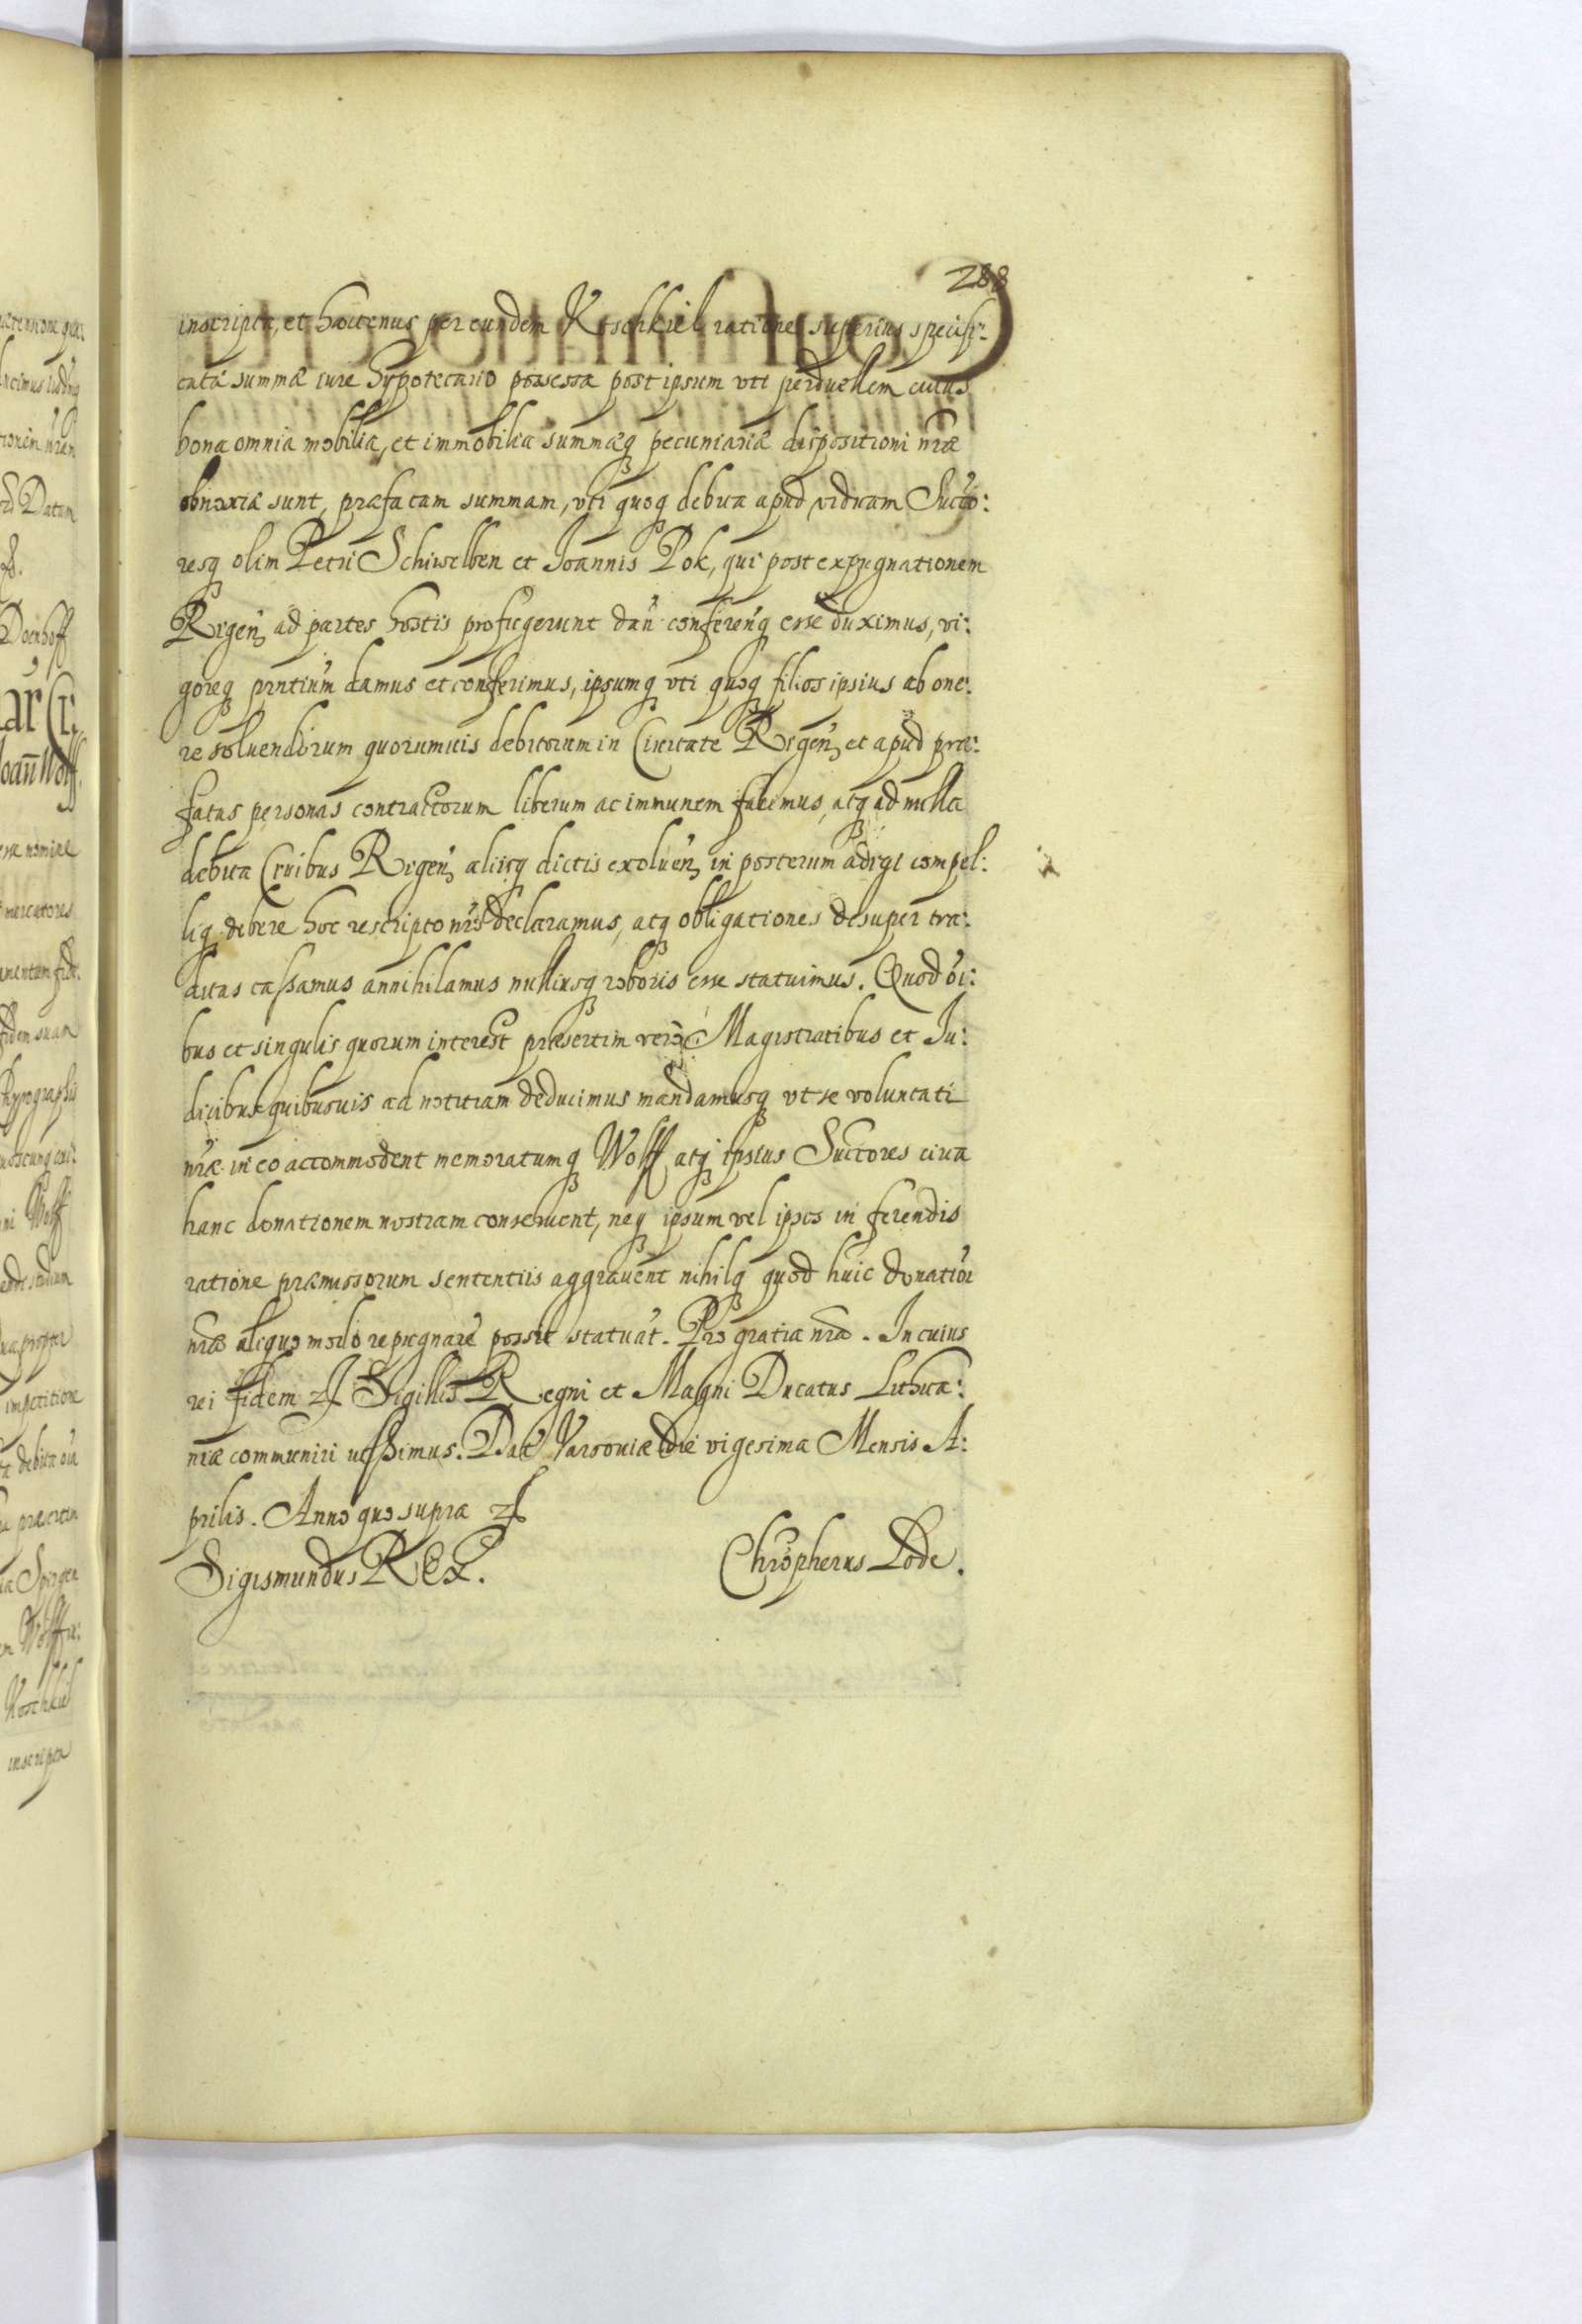 288
inscripta, et hactenus per eundem Koschkiel ratione superius specifi:
catæ summæ iure hypotecario possessa post ipsum vti perduellem cuius
bona omnia mobilia, et immobilia summæq pecuniariæ dispositioni nræ
obnoxiæ sunt, præfatam summam, vti quoq debita apud viduam Succo:
resq olim Petri Schiwelben et Joannis Pok, qui post expugnationem
Rigen, ad partes hostis profugerunt dan conferenq esse duximus, vi:
goreq pntium damus et conferimus, ipsumq vti quoq filios ipsius ab one:
re soluendorum quorumuis debitorum in Ciuitate Rigen, et apud præ:
fatas personas contractorum liberum ac immunem facimus, atq ad nulla
debita Ciuibus Rigen, aliisq dictis exoluen, in posterum adigi compel:
liq debere hoc rescripto nro declaramus, atq obligationes desuper tra:
ditas cassamus annihilamus nulliusq roboris esse statuimus. Quod oi:
bus et singulis quorum interest præsertim vero Magistratibus et Ju:
dicibus quibusuis ad notitiam deducimus mandamusq vt se voluntati
nræ in eo accommodent memoratumq Wolff atq ipsius Succores circa
hanc donationem nostram conseruent, neq ipsum vel ipsos in ferendis
ratione præmissorum sententiis aggrauent nihilq quod huic donationi
nræ aliquo modo repugnare possit statuat. Pro gratia nra. In cuius
rei fidem Sigillis Regni et Magni Ducatus Lithua:
niæ communiri iussimus. Dat Varsouiæ die vigesima Mensis A:
prilis. Anno quo supra
Sigismundus REX. Chropherus Lode.